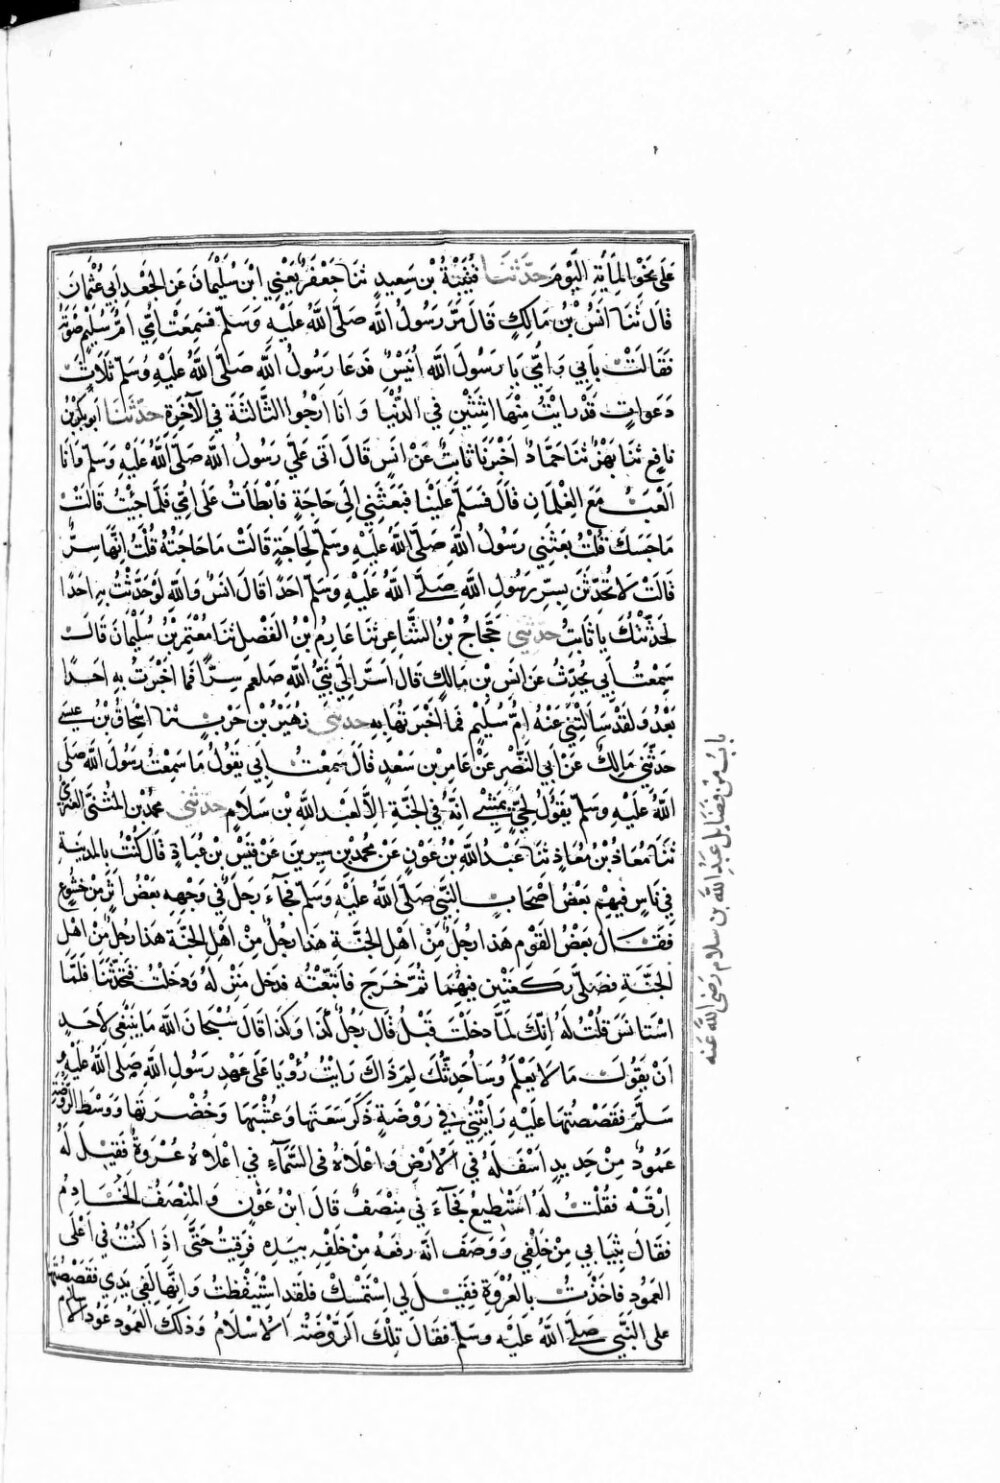 عَلَى نَحْوِ المِائَةِ اليَوْمَ حَدَّثَنَا قُتَيْبَةُ بْن سَعِيدٍ ثَنَا جَعْفَرٌ يَعْنِي ابْنَ سُلَيْمَانَ عَنِ الجَعْدِ اَبِي عُثْمَانَ
قَالَ ثَنَا اَنَسُ بْنُ مَالِكٍ قَالَ مَرَّ رَسُولُ اللَّه صَلَّى اللَّهُ عَلَيْهِ وَسَلَّمَ فَسَمِعَتْ اُمِّي اُمُّ سُلَيْمٍ صَوْتَهُ
فَقَالَتْ بِاَبِي وَاُمِّي يَا رَسُولَ اللَّه اُنَيْسٌ فَدَعَا رَسُولُ اللَّهِ صَلَّى اللَّهُ عَلَيْهِ وَسَلَّمَ ثَلَاثَ
دَعَوَاتٍ قَدْ رَاَيْتُ مِنْهَا اثْنَتَيْنِ فِي الدُّنْيَا وَاَنَا اَرْجُوا الثَّالِثَةَ فِي الآخِرَةِ حَدَّثَنَا اَبُو بَكْرِ بْنُ
نَافِعٍ ثَنَا بَهْزٌ ثَنَا حَمَّادٌ اَخْبَرَنَا ثَابِتٌ عَنْ اَنَسٍ قَالَ اَتَى عَلَيَّ رَسُولُ اللَّه صَلَّى اللَّهُ عَلَيْهِ وَسَلَّمَ وَاَنَا
اَلْعَبُ مَعَ الغِلْمَانِ قَالَ فَسَلَّمَ عَلَيْنَا فَبَعَثَنِي اِلَى حَاجَةٍ فَاَبْطَاْتُ عَلَى اُمِّي فَلَمَّا جِئْتُ قَالَتْ
مَا حَبَسَكَ قُلْتُ بَعَثَنِي رَسُولُ اللَّهِ صَلَّى اللَّهُ عَلَيْهِ وَسَلَّمَ لِحَاجَةٍ قَالَتْ مَا حَاجَتُهُ قُلْتُ اِنَّهَا سِرٌّ
قَالَتْ لَا تُحَدِّثَنَّ بِسِرِّ رَسُولِ اللَّهِ صَلَّى اللَّهُ عَلَيْهِ وَسَلَّمَ اَحَدًا قَالَ اَنَسٌ وَاللَّهِ لَوْ حَدَّثْتُ بِهِ اَحَدًا
لَحَدَّثْتُكَ يَا ثَابِتُ حَدَّثَنِي حَجَّاجُ بْنُ الشَّاعِرِ ثَنَا عَارِمُ بْنُ الفَضْلِ ثَنَا مُعْتَمِرُ بْنُ سُلَيْمَانَ قَالَ
سَمِعْتُ اَبِي يُحَدِّثُ عَنْ اَنَسِ بْنِ مَالِكٍ قَالَ اَسَرَّ اِلَيَّ نَبِيُّ اللَّهِ صَلعم سِرًّا فَمَا اَخْبَرْتُ بِهِ اَحَدًا
بَعْدُ وَلَقَدْ سَاَلَتْنِي عَنْهُ اُمُّ سُلَيْمٍ فَمَا اَخْبَرْتُهَا بِهِ حَدَّثَنِي زُهَيْرُ بْنُ حَرْبٍ ثَنَا اِسْحَاقُ بْنُ عِيسَى
حَدَّثَنِي مَالِكٌ عَنْ اَبِي النَّضْرِ عَنْ عَامِرِ بْنِ سَعْدٍ قَالَ سَمِعْتُ اَبِي يَقُولُ مَا سَمِعْتُ رَسُولَ اللَّه صَلَّى
اللَّهُ عَلَيْهِ وَسَلَّمَ يَقُولُ لِحَيٍّ يَمْشِي اِنَّهُ فِي الجَنَّةِ اِلَّا لِعَبْدِ اللَّهِ بْنِ سَلَامٍ حَدَّثَنِي مُحَمَّدُ بْنُ المُثَنَّى العَنَزِيُّ
ثَنَا مُعَاذُ بْنُ مُعَاذٍ ثَنَا عَبْدُ اللَّهِ بْنُ عَوْنٍ عَنْ مُحَمَّدِ بْنِ سِيرِينَ عَنْ قَيْسِ بْنِ عُبَادٍ قَالَ كُنْتُ بِالمَدِينَةِ
فِي نَاسٍ فِيهِمْ بَعْضُ اَصْحَابِ النَّبِيِّ صَلَّى اللَّهُ عَلَيْهِ وَسَلَّمَ فَجَآءَ رَجُلٌ فِي وَجْهِهِ بَعْضُ اَثَرٍ مِنْ خُشُوعٍ
فَقَالَ بَعْضُ القَوْمِ هَذَا رَجُلٌ مِنْ اَهْلِ الجَنَّةِ هَذَا رَجُلٌ مِنْ اَهْلِ الجَنَّةِ هَذَا رَجُلٌ مِنْ اَهْلِ
الجَنَّةِ فَصَلَّى رَكْعَتَيْنِ فِيهِمَا ثُمَّ خَرَجَ فَاتَّبَعْتُهُ فَدَخَلَ مَنْزِلَهُ وَدَخَلْتُ فَتَحَدَّثْنَا فَلَمَّا
اسْتَانَسَ قُلْتُ لَهُ اِنَّكَ لَمَّا دَخَلْتَ قَبْلُ قَالَ رَجُلٌ كَذَا وَكَذَا قَالَ سُبْحَانَ اللَّه مَا يَنْبَغِي لِاَحَدٍ
اَنْ يَقُولَ مَا لَا يَعْلَمُ وَسَاُحَدِّثُكَ لِمَ ذَاكَ رَاَيْتُ رُؤْيَا عَلَى عَهْدِ رَسُولِ اللَّهِ صَلَّى اللَّهُ عَلَيْهِ وَ
سَلَّمَ فَقَصَصْتُهَا عَلَيْهِ رَاَيْتُنِي فِي رَوْضَةٍ ذَكَرَ سَعَتَهَا وَعُشْبَهَا وَخُضْرَتَهَا وَوَسْطَ الرَّوْضَةِ
عَمُودٌ مِنْ حَدِيدٍ اَسْفَلُهُ فِي الْاَرْضِ وَاَعْلَاهُ فِي السَّمَآءِ فِي اَعْلَاهُ عُرْوَةٌ فَقِيلَ لَهُ
ارْقَهْ فَقُلْتُ لَهُ اَسْتَطِيعُ فَجَآءَنِي مِنْصَفٌ قَالَ ابْنُ عَوْنٍ وَالمِنْصَفُ الخَادِمُ
فَقَالَ بِثِيَابِي مِنْ خَلْفِي وَوَصَفَ اَنَّهُ رَفَعَهُ مِنْ خَلْفِهِ بِيَدِهِ فَرَقِيتُ حَتَّى اِذَا كُنْتُ فِي اَعْلَى
العَمُودِ فَاَخَذْتُ بِالعُرْوَةِ فَقِيلَ لِي اسْتَمْسِكْ فَلَقَدِ اسْتَيْقَظْتُ وَاِنَّهَا لَفِي يَدِي فَقَصَصْتُهَا
عَلَى النَّبِيِّ صَلَّى اللَّهُ عَلَيْهِ وَسَلَّمَ فَقَالَ تِلْكَ الرَّوْضَةُ الْاِسْلَامُ وَذَلِكَ العَمُودُ عَمُودُ الاسلام
بابٌ مِنْ فَضَايِلِ عَبْدِ اللَّه بن سلام رَضِيَ اللَّهُ عَنه